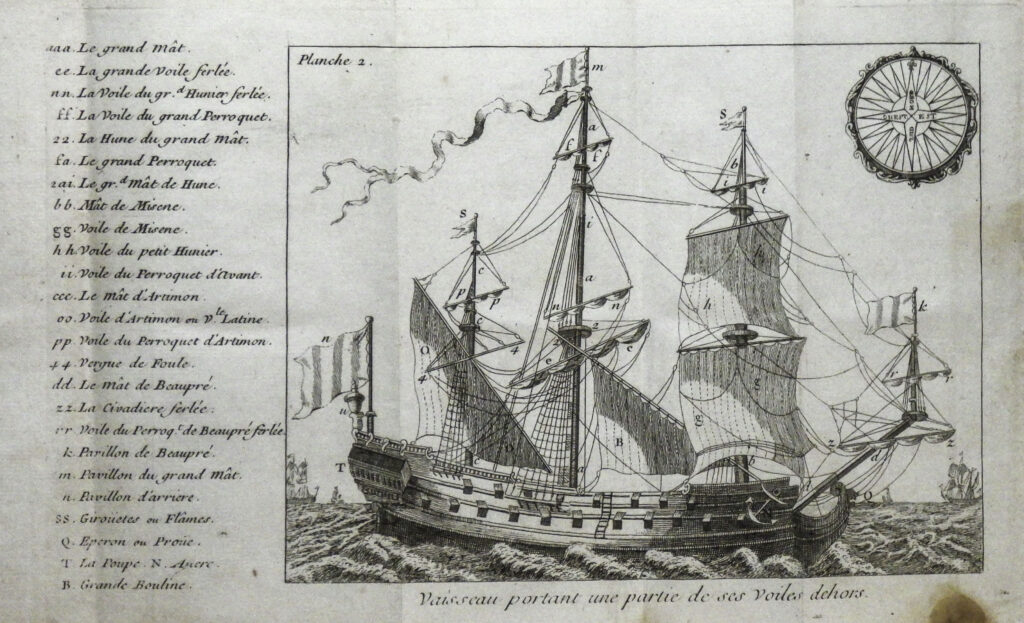 aaa. Le grand Mât.
ee. La grande Voile ferlée.
nn. La Voile du gr.d Hunier ferlée.
ff. La Voile du grand Perroquet.
22. La Hune du grand Mât.
fa. Le grand Perroquet.
2ai. Le gr.d Mât de Hune.
bb. Mât de Misene.
gg. Voile de Misene.
hh. Voile du petit Hunier.
ii. Voile du Perroquet d'Avant.
ccc. Le mât d'Artimon.
oo. Voile d'Artimon ou V.le Latine.
pp. Voile du Perroquet d'Artimon.
44. Vergue de Foule.
dd. Le Mât de Beaupré.
zz. La Civadiere ferlée.
rr. Voile du Perroq.t de Beaupré ferlée.
k. Pavillon de Beaupré.
m. Pavillon du grand Mât.
n. Pavillon d'arriere.
SS. Giroüetes ou Flâmes.
Q. Eperon ou Proüe.
T. La Poupe. N. Ancre.
B. Grande Bouline.
Planche 2.
m
a
f
f
S
b
i
i
S
c
p
p
i
a
n
n
2
2
e
e
h
h
k
r
r
n
u
O
4
4
c
g
g
B
z
z
d
b
a
T
Q
EST
Vaisseau portant une partie de ses Voiles dehors.